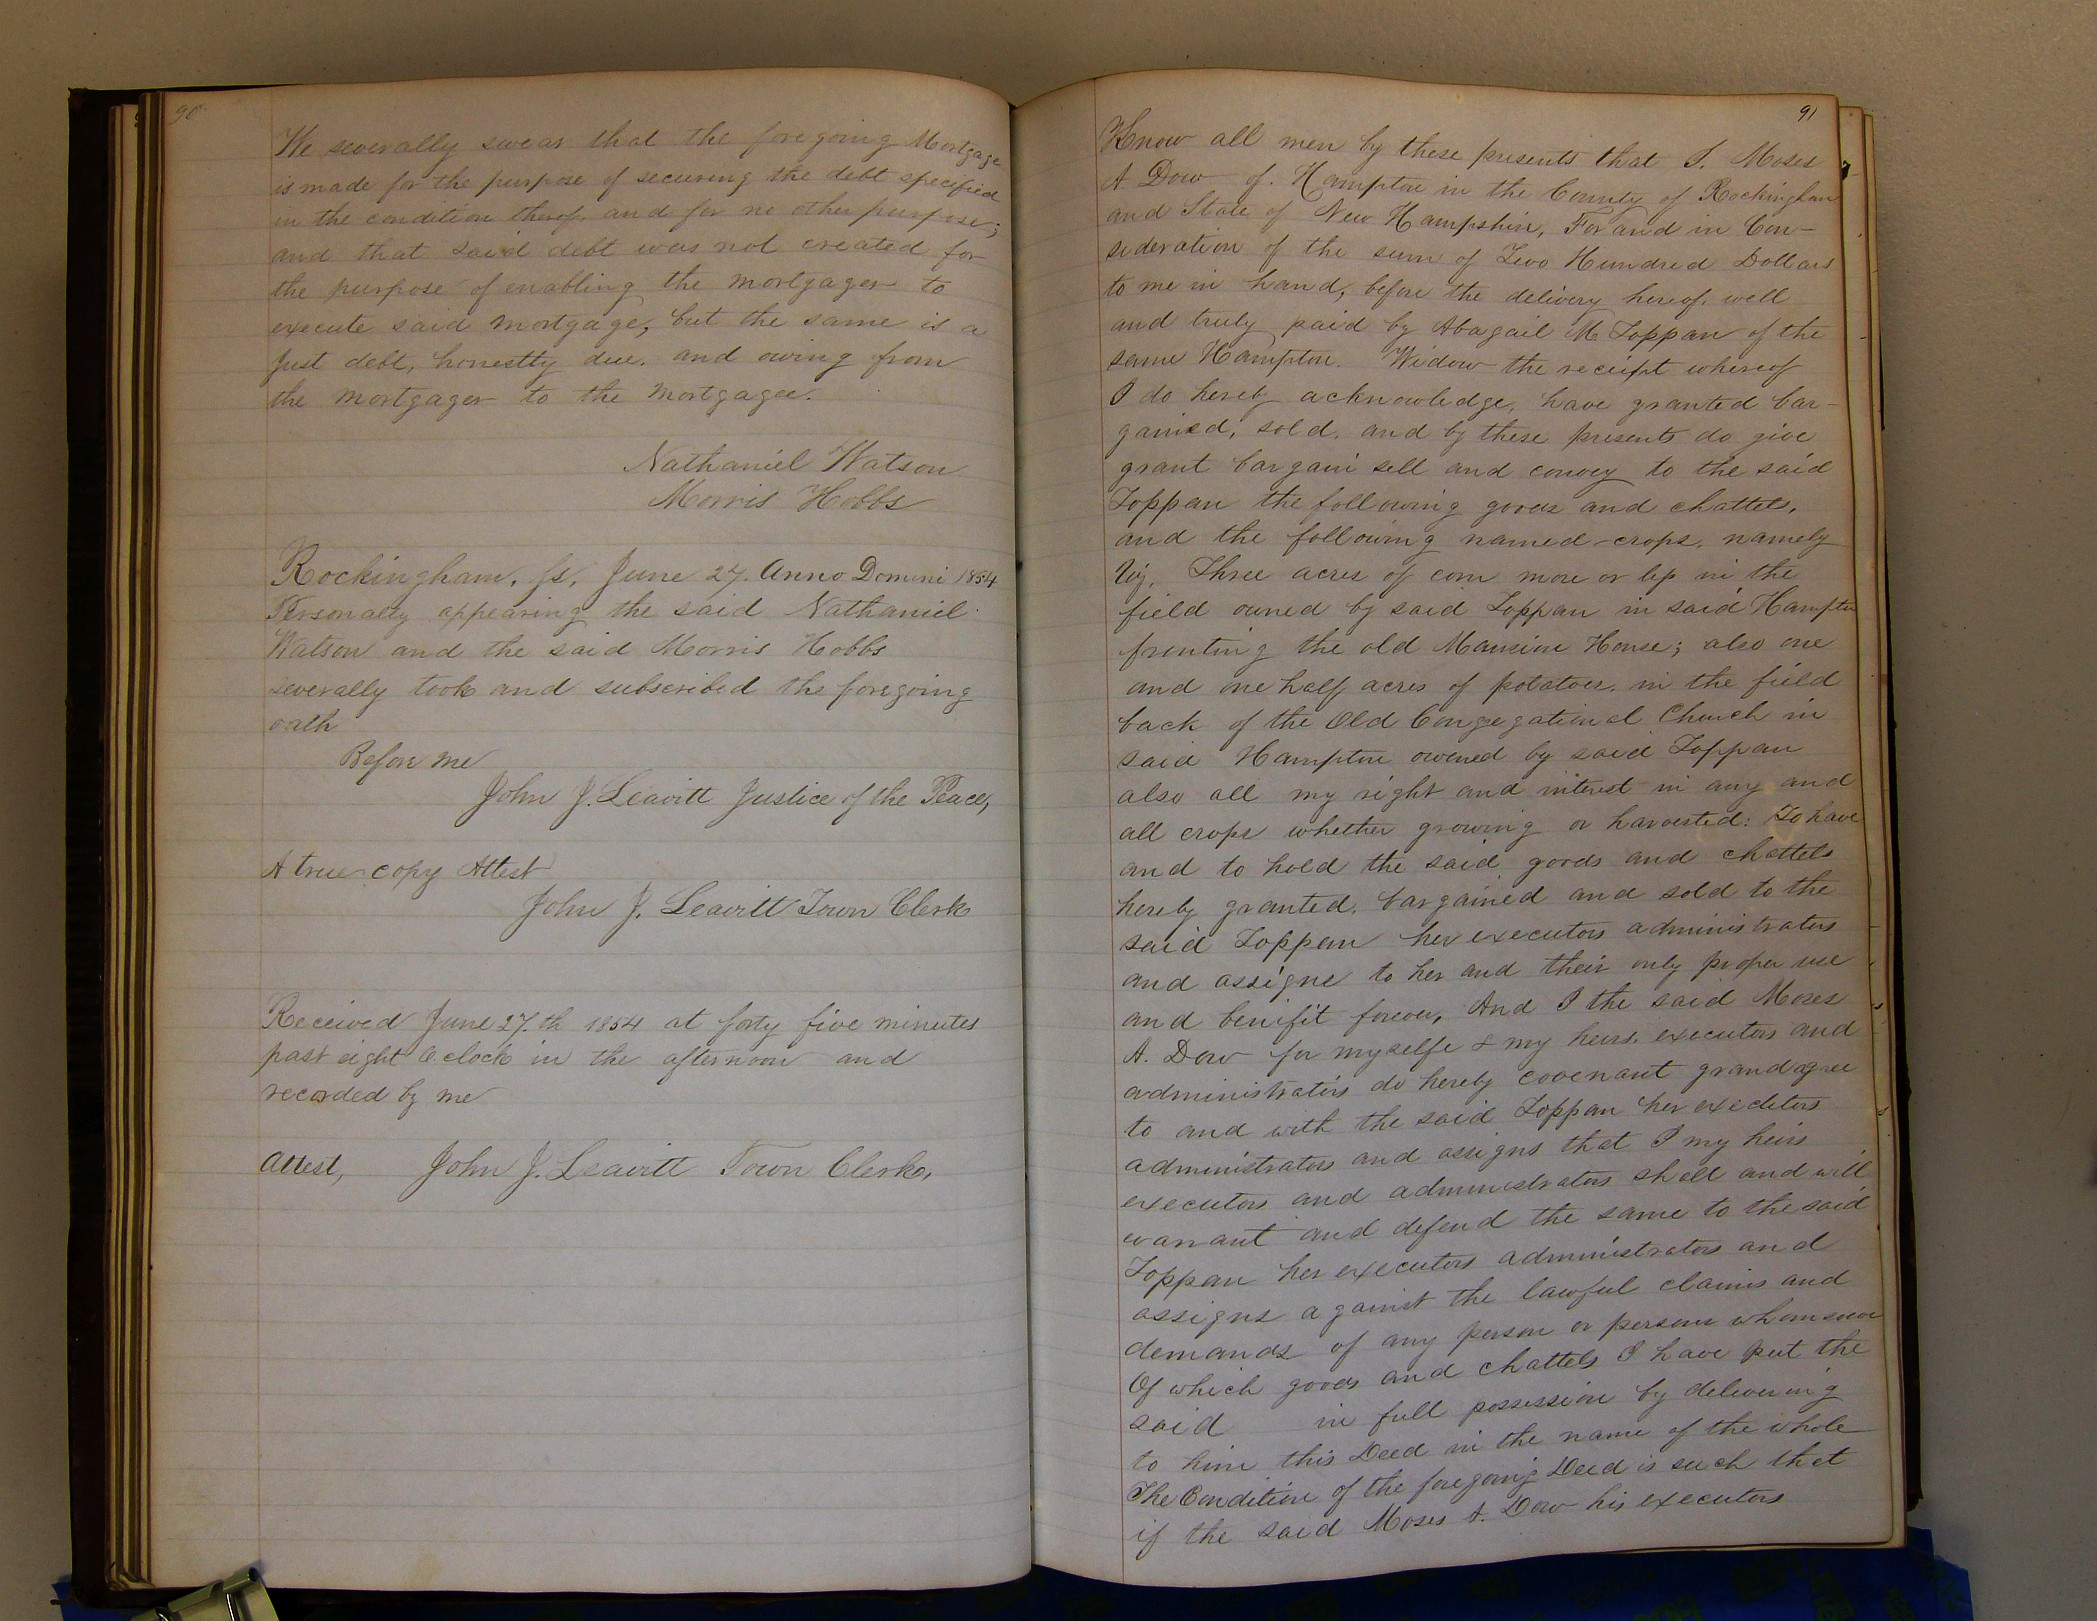 90
We severally swear that the foregoing Mortgage
is made for the purpose of securing the debt specified
in the condition thereof, and for no other purpose;
and that said debt was not created for
the purpose of enabling the mortgager to
execute said mortgage, but the same is a
just debt, honestly due, and owing from
the mortgager to the mortgagee.
Nathaniel Watson
Morris Hobbs
Rockingham, ss, June 27. Anno Domini 1854
Personally appearing the said Nathaniel
Watson and the said Morris Hobbs
severally took and subscribed the foregoing
oath
Before me
John J. Leavitt Justice of the Peace,
A true copy Attest
John J. Leavitt Town Clerk
Received June 27.th 1854 at forty five minutes
past eight Oclock in the afternoon and
recorded by me
Attest, John J. Leavitt Town Clerk,
91
Know all men by these presents that I, Moses
A Dow of. Hampton in the County of Rockingham
and State of New Hampshire, For and in Con-
sideration of the sum of Two Hundred Dollars
to me in hand, before the delivery hereof, well
and truly paid by Abagail M Toppan of the
same Hampton. Widow the receipt whereof
I do hereby acknowledge, have granted bar-
gained, sold, and by these presents do give
grant bargain sell and convey to the said
Toppan the following goods and chattels,
and the following named crops, namely
Viz, Three acres of corn more or less in the
field owned by said Toppan in said Hampton
fronting the old Mansion House; also one
and one half acres of potatoes, in the field
back of the Old Congregational Church in
said Hampton owned by said Toppan
also all my right and interest in any and
all crops whether growing or harvested: To have
and to hold the said goods and chattels
hereby granted, bargained and sold to the
said Toppan her executors administrators
and assigns to her and their only proper use
and benifit forever, And I the said Moses
A. Dow for myselfe & my heirs, executors and
administrators do hereby covenant grand agree
to and with the said Toppan her executors
administrators and assigns that I my heirs
executors and administrators shall and will
warrant and defend the same to the said
Toppan her executors administrators and
assigns against the lawful claims and
demands of any person or persons whomsoever
Of which goods and chattels I have put the
said in full possession by delivering
to him this Deed in the name of the whole
The Condition of the foregoing Deed is such that
if the said Moses A. Dow his executors